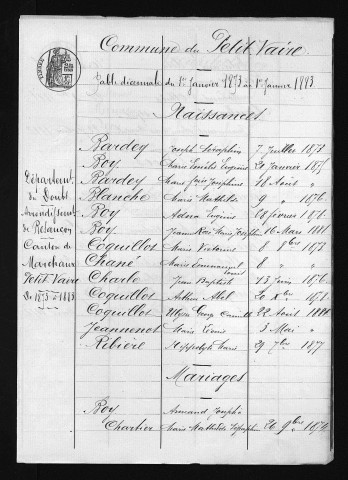 Commune du Petit Vaire
Table décennale du 1er Janvier 1873 au 1er Janvier 1883
Naissances
Département
du Doubs
Arrondissement
de Besançon
Canton de
Marchaux
Petit Vaire
De 1873 à 1883
Bardey Joseph Séraphin 7 Juillet
Roy Marie Eugénie 20 Janvier
Bardey Marie Joséphine 16 Août "
Blanche Marie Mathilde 9 " 1876
Roy Eugène 20 février
Roy Jeanne Marie 16 Mars 1881
Coquillot Marie Victorine 8 8bre
Chané Marie Emmanuel 8 "
Charle Jean Baptiste 13 Juin 1876
Coquillot Arthur Abel 20 Xbre
Coquillot Georges Camille 22 Août
Jeannenot Marie Louise 5 Mai "
Ribière Hippolyte Marie 29 7bre 1877
Mariages
Roy Armand Joseph
Chartier Marie Mathilde 26 9bre